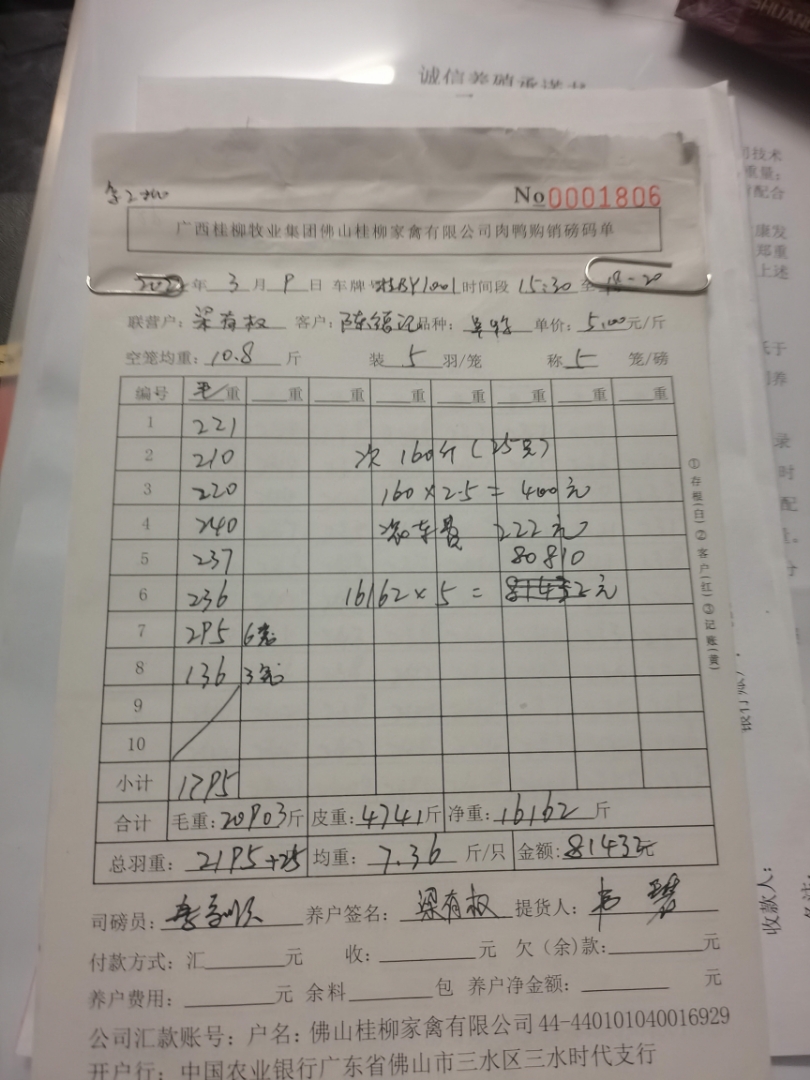 诚信养殖承诺书
No 0001806
广西桂柳牧业集团佛山桂柳家禽有限公司肉鸭购销磅码单
年 3 月 9 日 车牌 BY1001 时间段 15:30 至 18-20
联营户: 梁有权 客户: 品种: 单价: 5.00 元/斤
空笼均重: 10.8 斤 装 5 羽/笼 称 5 笼/磅
编号 毛重 重 重 重 重 重 重 重
1 221
2 210 次 160斤 (25只)
3 220 160×2.5=400元
4 240 车费 222元
5 237 80810
6 236 16162×5= 元
7 295 6笼
8 136 3笼
9
10
小计 1795
合计 毛重: 20903 斤 皮重: 4741 斤 净重: 16162 斤
总羽重: 2195+25 均重: 7.36 斤/只 金额: 81432元
司磅员: 养户签名: 梁有权 提货人:
付款方式: 汇 元 收: 元 欠(余)款: 元
养户费用: 元 余料 包 养户净金额: 元
公司汇款账号: 户名: 佛山桂柳家禽有限公司 44-440101040016929
开户行: 中国农业银行广东省佛山市三水区三水时代支行
①存根(白)②客户(红)③记账(黄)
技术
重量;
配合
康发
郑重
上述
收款人: